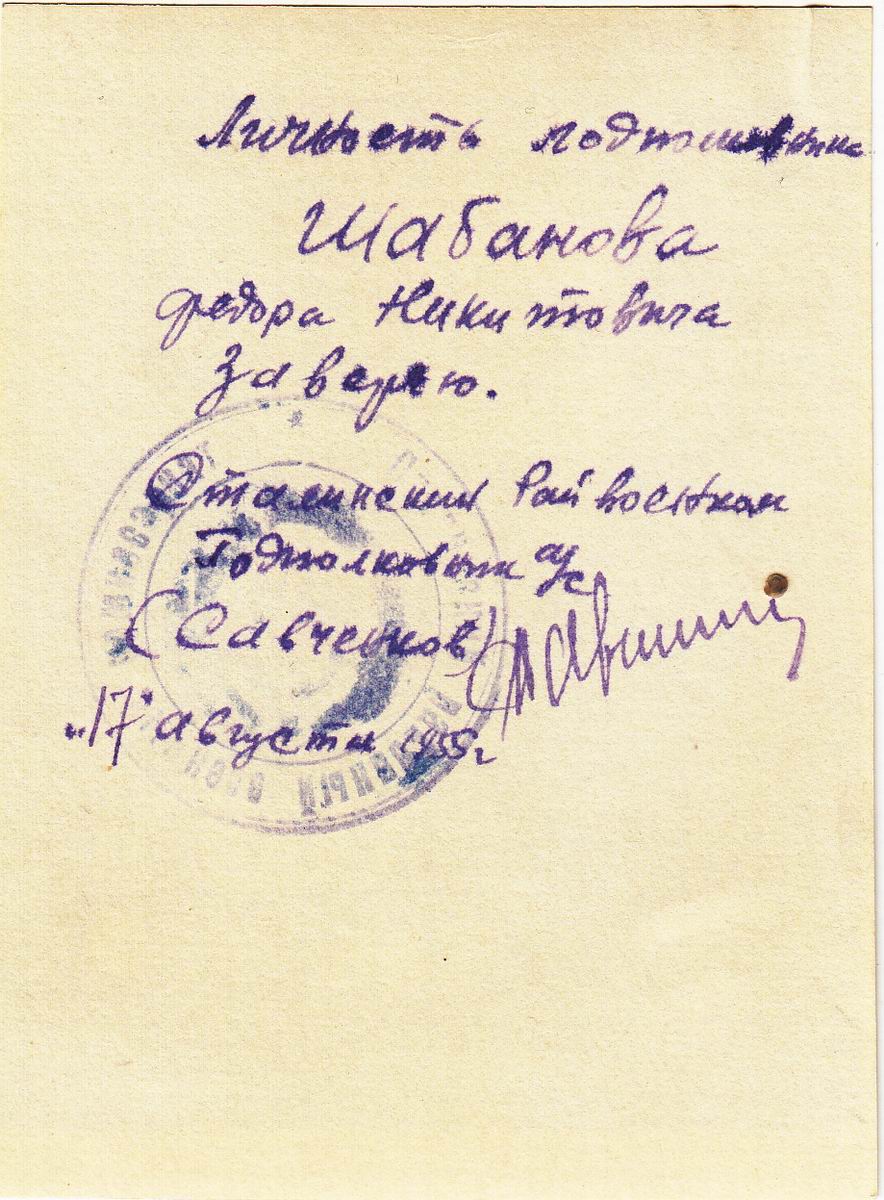 Личность подполковника
Шабанова
Федора Никитовича
Заверяю.
Сталинский Райвоенком
Подполковник а/с
(Савченков)
"17" августа 1955 г